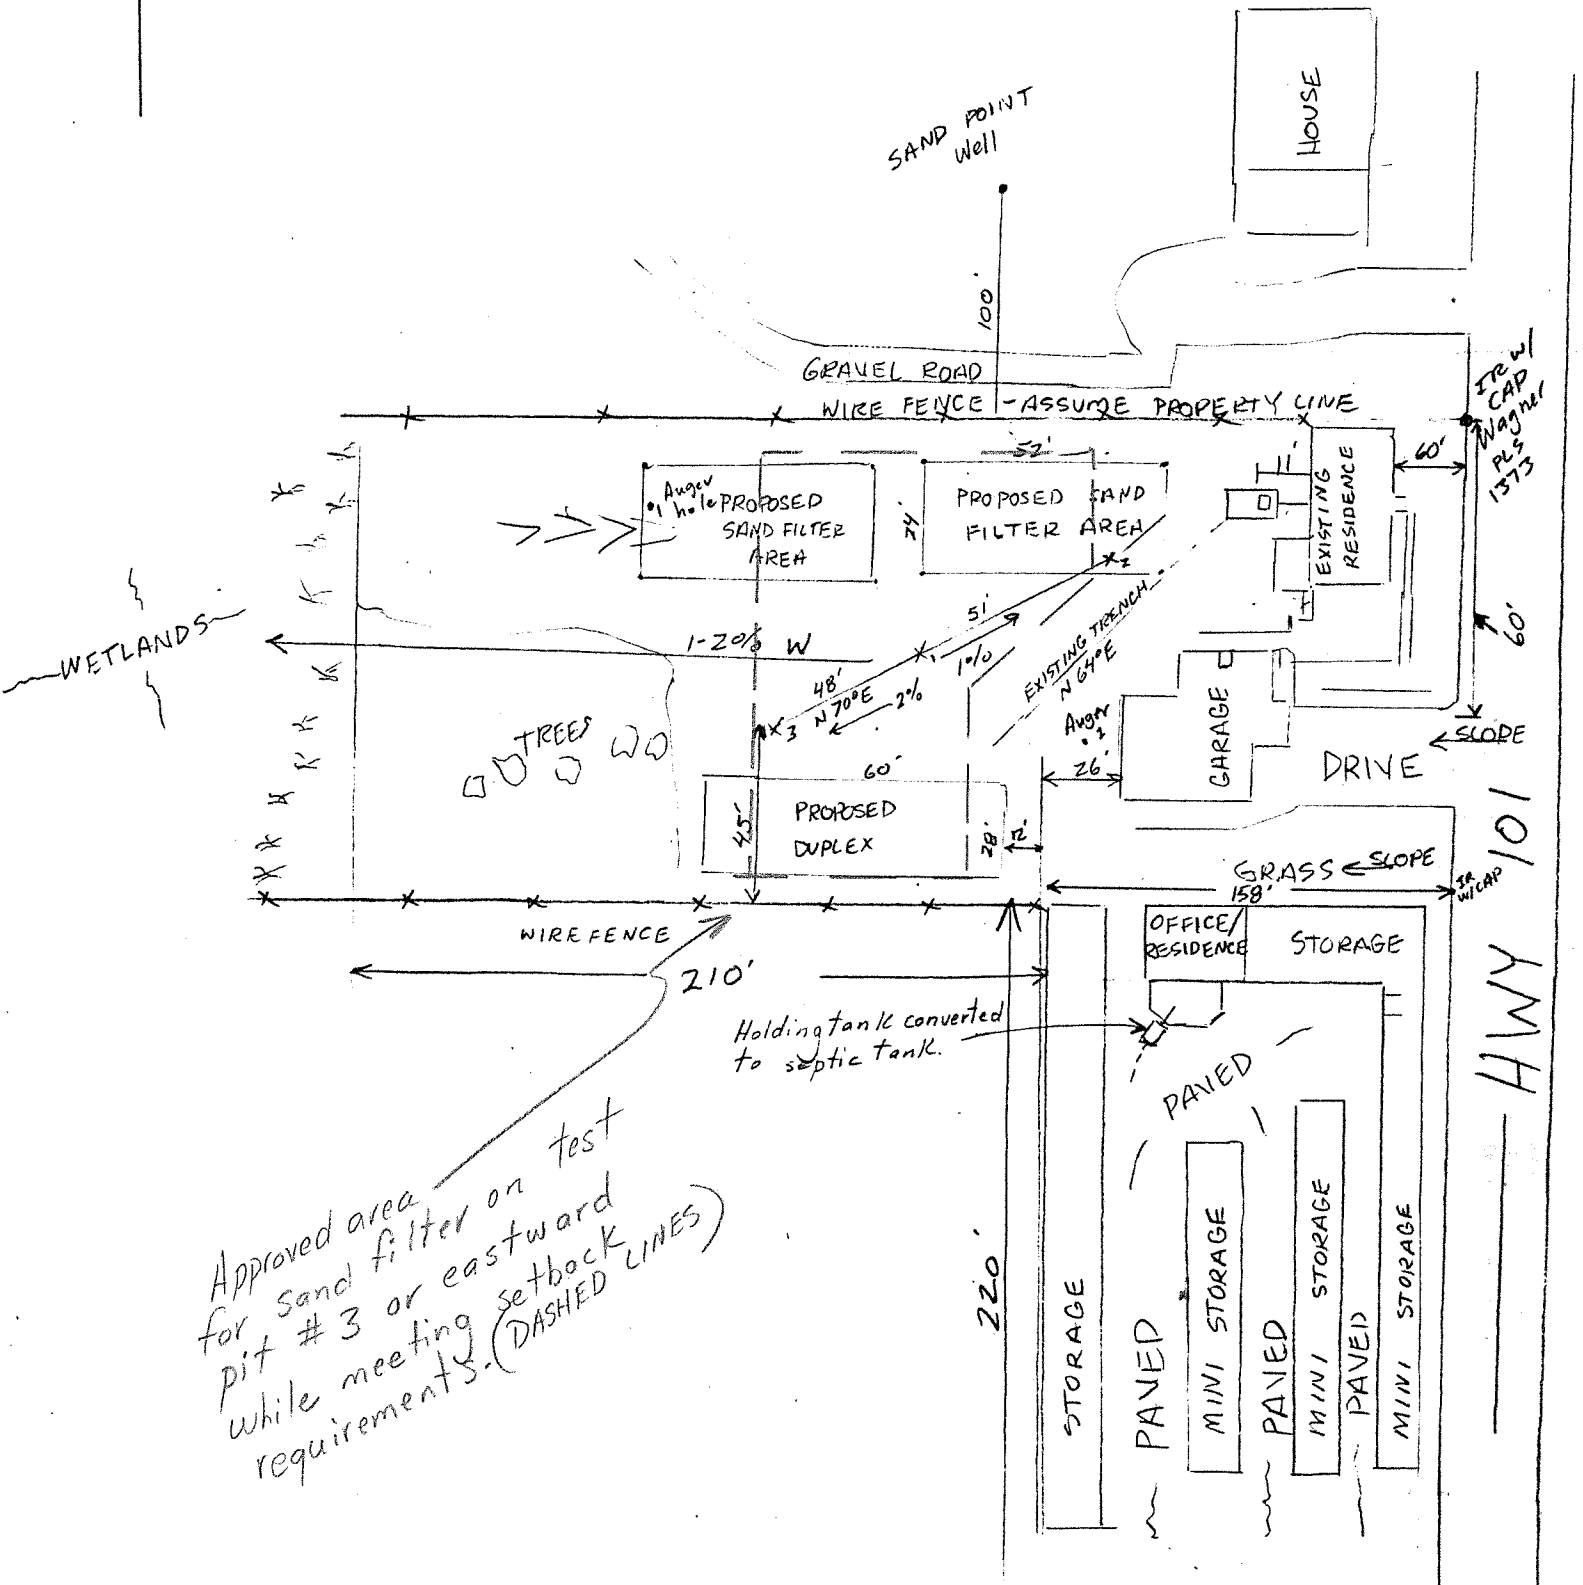 HOUSE
SAND POINT
Well
100'
GRAVEL ROAD
WIRE FENCE - ASSUME PROPERTY LINE
IR W/
CAP
Wagner
PLS
1373
52'
11'
60'
Auger
hole
1
PROPOSED
SAND FILTER
AREA
24'
PROPOSED SAND
FILTER AREA
EXISTING
RESIDENCE
2
60'
WETLANDS
1-20% W
51'
1
1%
EXISTING TRENCH
N 64°E
48'
N 70°E
2%
3
Auger
2
TREES
GARAGE
SLOPE
DRIVE
26'
60'
PROPOSED
DUPLEX
45'
28'
12'
GRASS
SLOPE
158'
IR
W/CAP
HWY 101
WIRE FENCE
OFFICE/
RESIDENCE
STORAGE
210'
Holding tank converted
to septic tank.
PAVED
Approved area
for sand filter on test
pit #3 or eastward
while meeting setback
requirements. (DASHED LINES)
220'
STORAGE
PAVED
MINI STORAGE
PAVED
MINI STORAGE
PAVED
MINI STORAGE